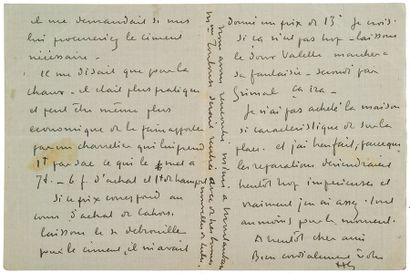 il me demandait si nous
lui procurerions le ciment
nécessaire.
Il me disait que pour la
chaux – il était plus pratique
et peut être même plus
économique de le faire apporter
par un charretier qui lui prend
1f par sac ce qui le met à
7f. – 6 f. d'achat et 1f de transport
Si ce prix correspond au
cours d'achat de Cahors,
laissons le se débrouiller
pour le ciment, il m'avait
nous avons rencontré
donné un prix de 13f je crois.
Si ça n'est pas trop – laissons
le doux Valette marcher à
sa fantaisie – secondé par
Grimal ça ira.
Je n'ai pas acheté la maison
si caractéristique de sur la
place – et j'ai bien fait, parce que
les réparations deviendraient
bientôt trop impérieuses et
vraiment j'en ai assez – tout
au moins pour le moment.
A bientôt cher ami
Bien cordialement à vous